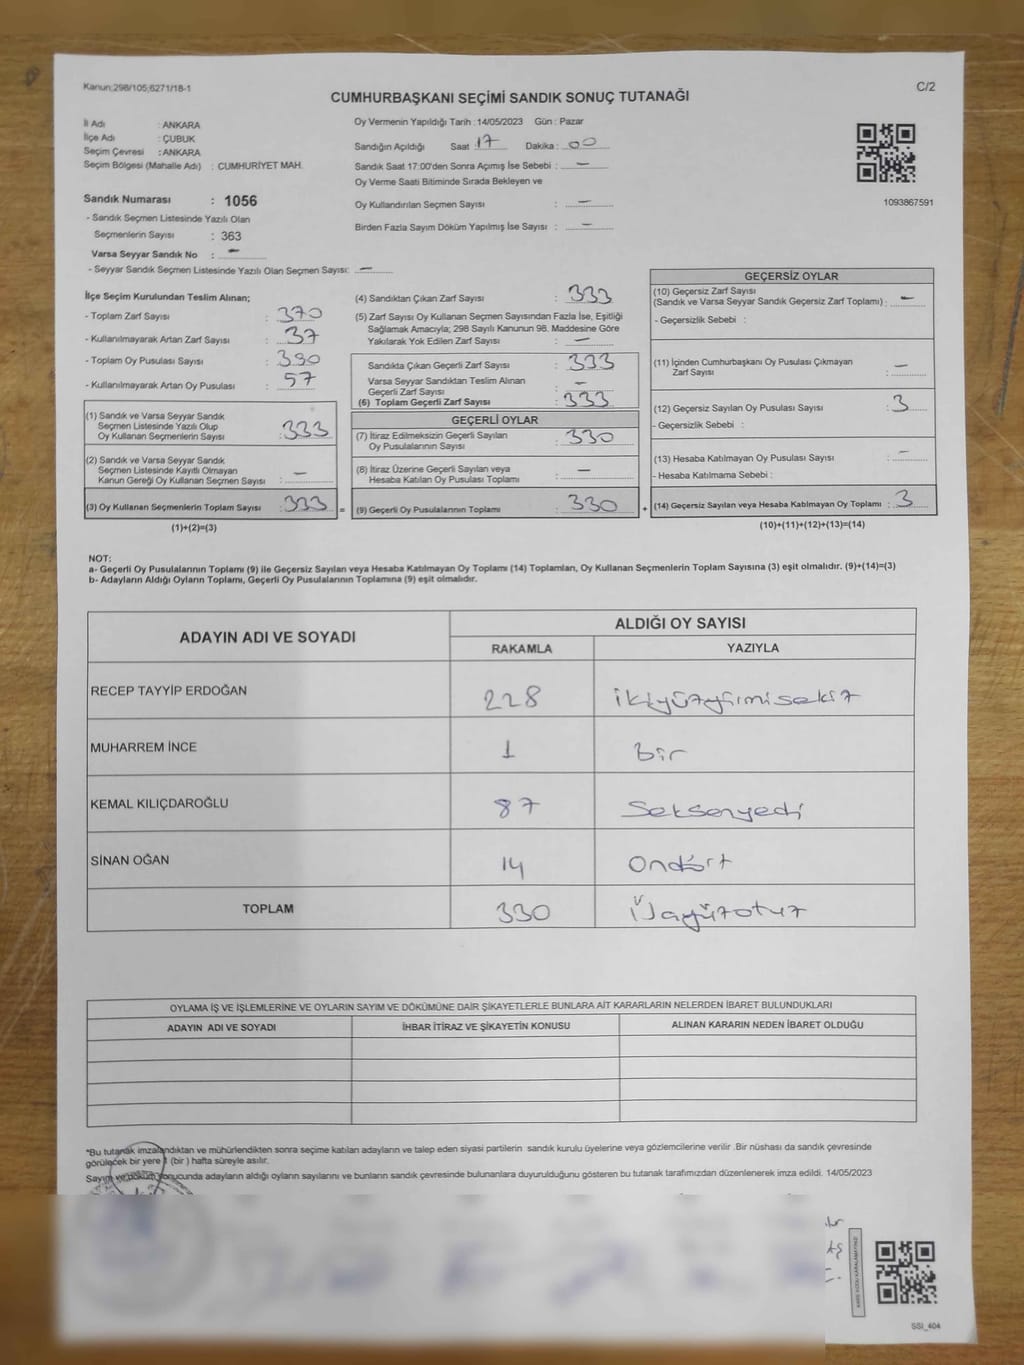 Kanun;298/105;6271/18-1
C/2
CUMHURBAŞKANI SEÇİMİ SANDIK SONUÇ TUTANAĞI
İl Adı : ANKARA
İlçe Adı : ÇUBUK
Seçim Çevresi : ANKARA
Seçim Bölgesi (Mahalle Adı) : CUMHURİYET MAH.
Sandık Numarası : 1056
- Sandık Seçmen Listesinde Yazılı Olan
Seçmenlerin Sayısı : 363
Varsa Seyyar Sandık No : -
- Seyyar Sandık Seçmen Listesinde Yazılı Olan Seçmen Sayısı: -
Oy Vermenin Yapıldığı Tarih : 14/05/2023 Gün : Pazar
Sandığın Açıldığı Saat : 17 Dakika : 00
Sandık Saat 17:00'den Sonra Açımış İse Sebebi : -
Oy Verme Saati Bitiminde Sırada Bekleyen ve
Oy Kullandırılan Seçmen Sayısı : -
Birden Fazla Sayım Döküm Yapılmış İse Sayısı : -
1093867591
İlçe Seçim Kurulundan Teslim Alınan;
- Toplam Zarf Sayısı : 370
- Kullanılmayarak Artan Zarf Sayısı : 37
- Toplam Oy Pusulası Sayısı : 390
- Kullanılmayarak Artan Oy Pusulası : 57
(1) Sandık ve Varsa Seyyar Sandık
Seçmen Listesinde Yazılı Olup
Oy Kullanan Seçmenlerin Sayısı : 333
(2) Sandık ve Varsa Seyyar Sandık
Seçmen Listesinde Kayıtlı Olmayan
Kanun Gereği Oy Kullanan Seçmen Sayısı : -
(3) Oy Kullanan Seçmenlerin Toplam Sayısı : 333 =
(1)+(2)=(3)
(4) Sandıktan Çıkan Zarf Sayısı : 333
(5) Zarf Sayısı Oy Kullanan Seçmen Sayısından Fazla İse, Eşitliği
Sağlamak Amacıyla; 298 Sayılı Kanunun 98. Maddesine Göre
Yakılarak Yok Edilen Zarf Sayısı : -
Sandıkta Çıkan Geçerli Zarf Sayısı : 333
Varsa Seyyar Sandıktan Teslim Alınan
Geçerli Zarf Sayısı : -
(6) Toplam Geçerli Zarf Sayısı : 333
GEÇERLİ OYLAR
(7) İtiraz Edilmeksizin Geçerli Sayılan
Oy Pusulalarının Sayısı : 330
(8) İtiraz Üzerine Geçerli Sayılan veya
Hesaba Katılan Oy Pusulası Toplamı : -
(9) Geçerli Oy Pusulalarının Toplamı : 330 +
GEÇERSİZ OYLAR
(10) Geçersiz Zarf Sayısı
(Sandık ve Varsa Seyyar Sandık Geçersiz Zarf Toplamı) : -
- Geçersizlik Sebebi :
(11) İçinden Cumhurbaşkanı Oy Pusulası Çıkmayan
Zarf Sayısı : -
(12) Geçersiz Sayılan Oy Pusulası Sayısı : 3
- Geçersizlik Sebebi :
(13) Hesaba Katılmayan Oy Pusulası Sayısı : -
- Hesaba Katılmama Sebebi :
(14) Geçersiz Sayılan veya Hesaba Katılmayan Oy Toplamı : 3
(10)+(11)+(12)+(13)=(14)
NOT:
a- Geçerli Oy Pusulalarının Toplamı (9) ile Geçersiz Sayılan veya Hesaba Katılmayan Oy Toplamı (14) Toplamları, Oy Kullanan Seçmenlerin Toplam Sayısına (3) eşit olmalıdır. (9)+(14)=(3)
b- Adayların Aldığı Oyların Toplamı, Geçerli Oy Pusulalarının Toplamına (9) eşit olmalıdır.
ADAYIN ADI VE SOYADI
ALDIĞI OY SAYISI
RAKAMLA YAZIYLA
RECEP TAYYİP ERDOĞAN 228 ikiyüzyirmisekiz
MUHARREM İNCE 1 Bir
KEMAL KILIÇDAROĞLU 87 Seksenyedi
SİNAN OĞAN 14 Ondört
TOPLAM 330 Üçyüzotuz
OYLAMA İŞ VE İŞLEMLERİNE VE OYLARIN SAYIM VE DÖKÜMÜNE DAİR ŞİKAYETLERLE BUNLARA AİT KARARLARIN NELERDEN İBARET BULUNDUKLARI
ADAYIN ADI VE SOYADI İHBAR İTİRAZ VE ŞİKAYETİN KONUSU ALINAN KARARIN NEDEN İBARET OLDUĞU
*Bu tutanak imzalandıktan ve mühürlendikten sonra seçime katılan adayların ve talep eden siyasi partilerin sandık kurulu üyelerine veya gözlemcilerine verilir .Bir nüshası da sandık çevresinde
görülecek bir yere 1 (bir ) hafta süreyle asılır.
Sayım ve döküm sonucunda adayların aldığı oyların sayılarını ve bunların sandık çevresinde bulunanlara duyurulduğunu gösteren bu tutanak tarafımızdan düzenlenerek imza edildi. 14/05/2023
SSI_404